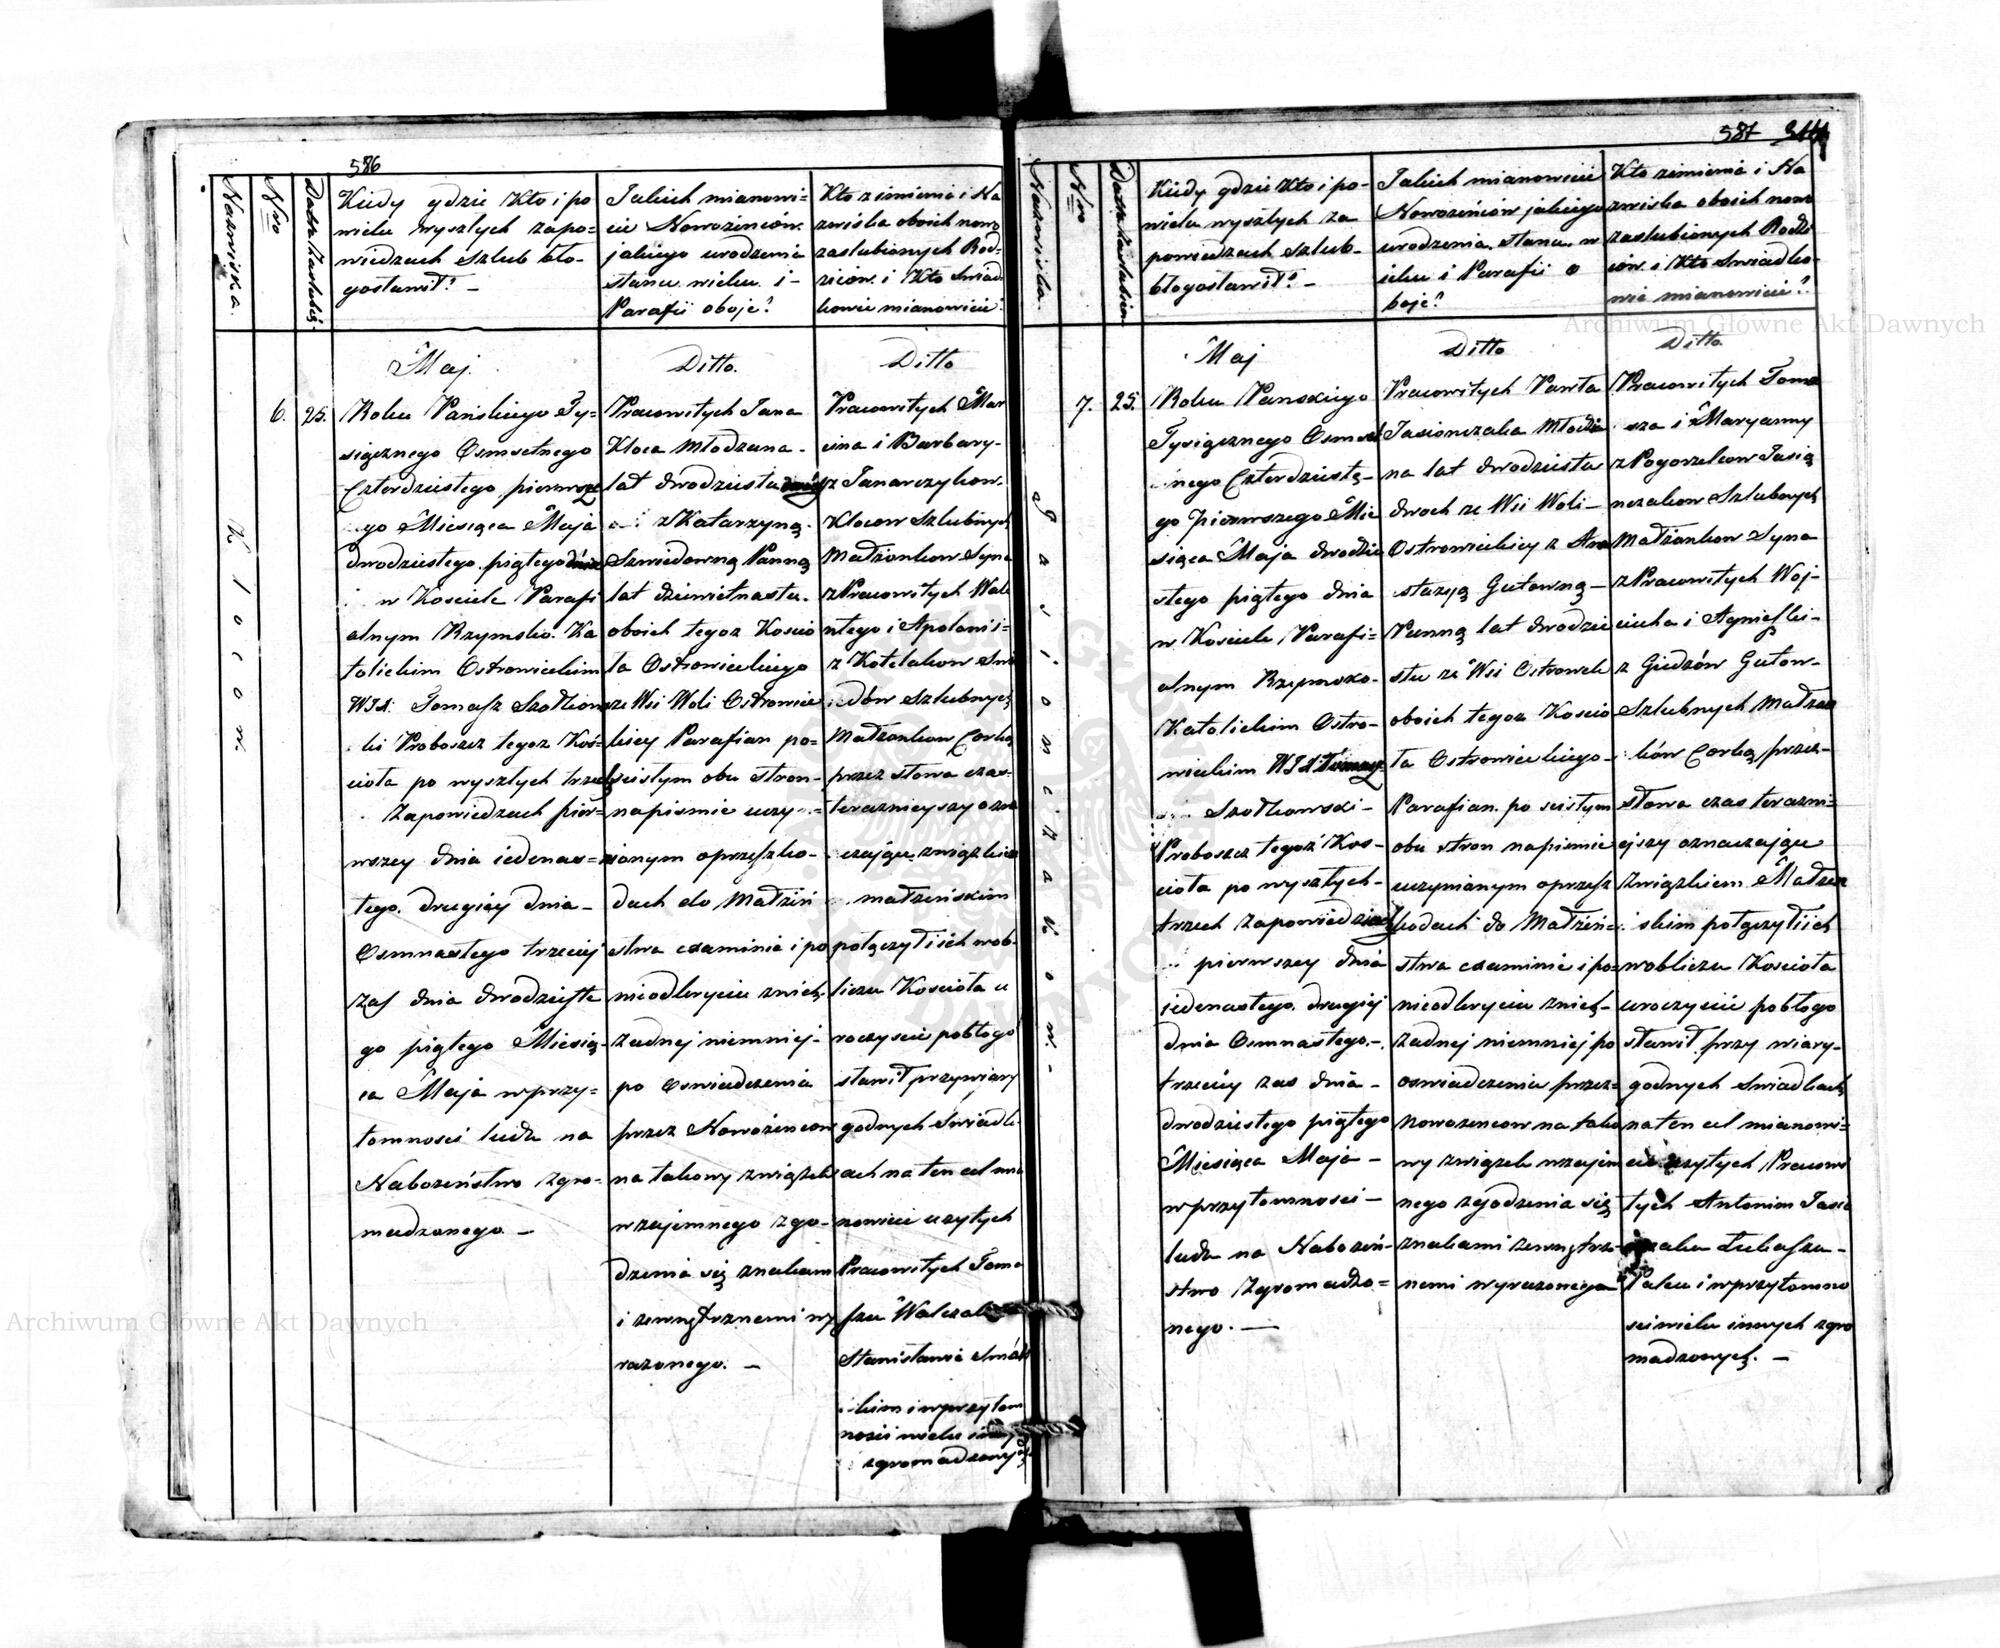 586
Nazwiska.
Nro
Data Zaslubin
Kiedy gdzie Kto i po
wielu wyszłych zapo=
wiedzach Szlub bło-
gosławił? -
Jakich mianowi=
cie Nowożeńców.
jakiego urodzenia
stanu wieku i -
Parafii oboje?
Kto z imienia i Na
zwiska oboich nowo
zaslubionych Rod=
ziców i Kto Swiad
kowie mianowicie?
Klocow.
6.
25.
Maj.
Roku Pańskiego Ty=
siącznego Osmsetnego
Czterdziestego pierwsze
go Miesiąca Maja
dwodziestego piątego dnia
w Kosciele Parafi
alnym Rzymsko Ka
tolickim Ostrowieckim
WJX: Tomasz Szołkows
ki Proboszcz tegoz Koś=
cioła po wyszłych trzech
Zapowiedzach pier=
wszey dnia iedenas=
tego. drugiey dnia -
Osmnastego trzeciey
zas dnia dwodzieste
go piątego Miesią-
ca Maja w przy=
tomnosci ludu na
Nabozeństwo zgro-
madzonego -
Ditto.
Pracowitych Jana
Kloca Młodziana -
lat dwodziestu
z Katarzyną
Szwiedowną Panną
lat dziewietnastu.
oboich tegoz Koscio
ła Ostrowieckiego
ze Wsi Woli Ostrowie
ckiey Parafian po=
scisłym obu stron-
napismie uczy-
nionym oprzeszko-
dach do Małżeń
stwa examinie i po
nieodkryciu znich,
zadnej niemniej-
po Oswiadczenia
przez Nowożencow
na takowy związek
wzajemnego zgo-
dzenia się znakam
i zewnętrznemi wy
razonego. -
Ditto
Pracowitych Mar
cina i Barbary-
z Janarczykow
Klocow Szlubnych
Małżonkow Syna
z Pracowitych Wale
ntego i Apolonii=
z Kotelakow Szwi
edów Szlubnych
Małżonkow Corką
przez słowa czas=
teraznieyszy ozna
czające związkiem
małżenskim
połączył i ich wob-
liczu Kosciola u
roczyscie pobłogo
sławił przy wiary
godnych Swiadk-
ach na ten cel mia
nowicie uzytych
Pracowitych Toma
szu Walczak
Stanisławie
kim i w przytom
nosci wielu innych
zgromadzonych
587
Nazwiska.
Nro
Data Zaslubin
Kiedy gdzie Kto i po-
wielu wyszłych za
powiedzach Szlub-
błogosławił? -
Jakich mianowicie
Nowożeńców jakiego
urodzenia. stanu w
ieku i Parafii o
boje?
Kto z imienia i Na
zwiska oboich nowo
zaslubionych Rodzi
ców. i Kto Swiadko-
wie mianowicie?
Jasionczakow.-
7.
25.
Maj
Roku Panskiego
Tysiącznego Osmset
nego Czterdzieste-
go pierwszego Mie
siąca Maja dwodzie
stego piątego dnia
w Kosciele Parafi=
alnym Rzymsko-
Katolickim Ostro-
wieckim WJX Tomasz
Szołkowski-
Proboszcz tegoż Kos-
cioła po wyszłych-
trzech Zapowiedziach
pierwszey dnia
iedenastego. drugiej
dnia Osmnastego.-
trzeciey zas dnia-
dwodziestego piątego
Miesiąca Maja-
w przytomnosci-
ludu na Nabozeń-
stwo Zgromadzo=
nego. -
Ditto
Pracowitych Pawła
Jasionczaka Młodzia
na lat dwodziestu
dwoch ze Wsi Woli-
Ostrowieckiey z Ana
stazyą Gutowną-
Panną lat dwodzie
stu ze Wsi Ostrowek
oboich tegoz Koscio
ła Ostrowieckiego-
Parafian. po scisłym
obu stron napismie
uczynionym oprzesz
kodach do Małżeń=
stwa examinie i po=
nieodkryciu znich-
żadnej niemniej po
oswiadczenia przez=
Nowozencow na tako
wy związek wzajem
nego zgodzenia się
znakami zewnętrz-
nemi wyrazonego
Ditto
Pracowitych Toma
sza i Maryanny
z Pogorzelcow Jasio
nczakow Szlubnych
Małżonkow Syna
z Pracowitych Woj-
ciecha i Agnieszki-
z Giedzów Gutow-
Szlubnych Małżon
ków Corką, przez-
słowa czas terazni=
ejszy oznaczające
Związkiem Małżen
skim połączył i ich
wobliczu Kosciola
uroczyscie pobłogo
sławił przy wiary-
godnych Swiadkach
na ten cel mianowi=
cie uzytych Pracowi
tych Antonim Jasio
nczaku Łukaszu-
Palcu i w przytomno
sci wielu innych zgro
madzonych. -
Archiwum Główne Akt Dawnych
Archiwum Główne Akt Dawnych